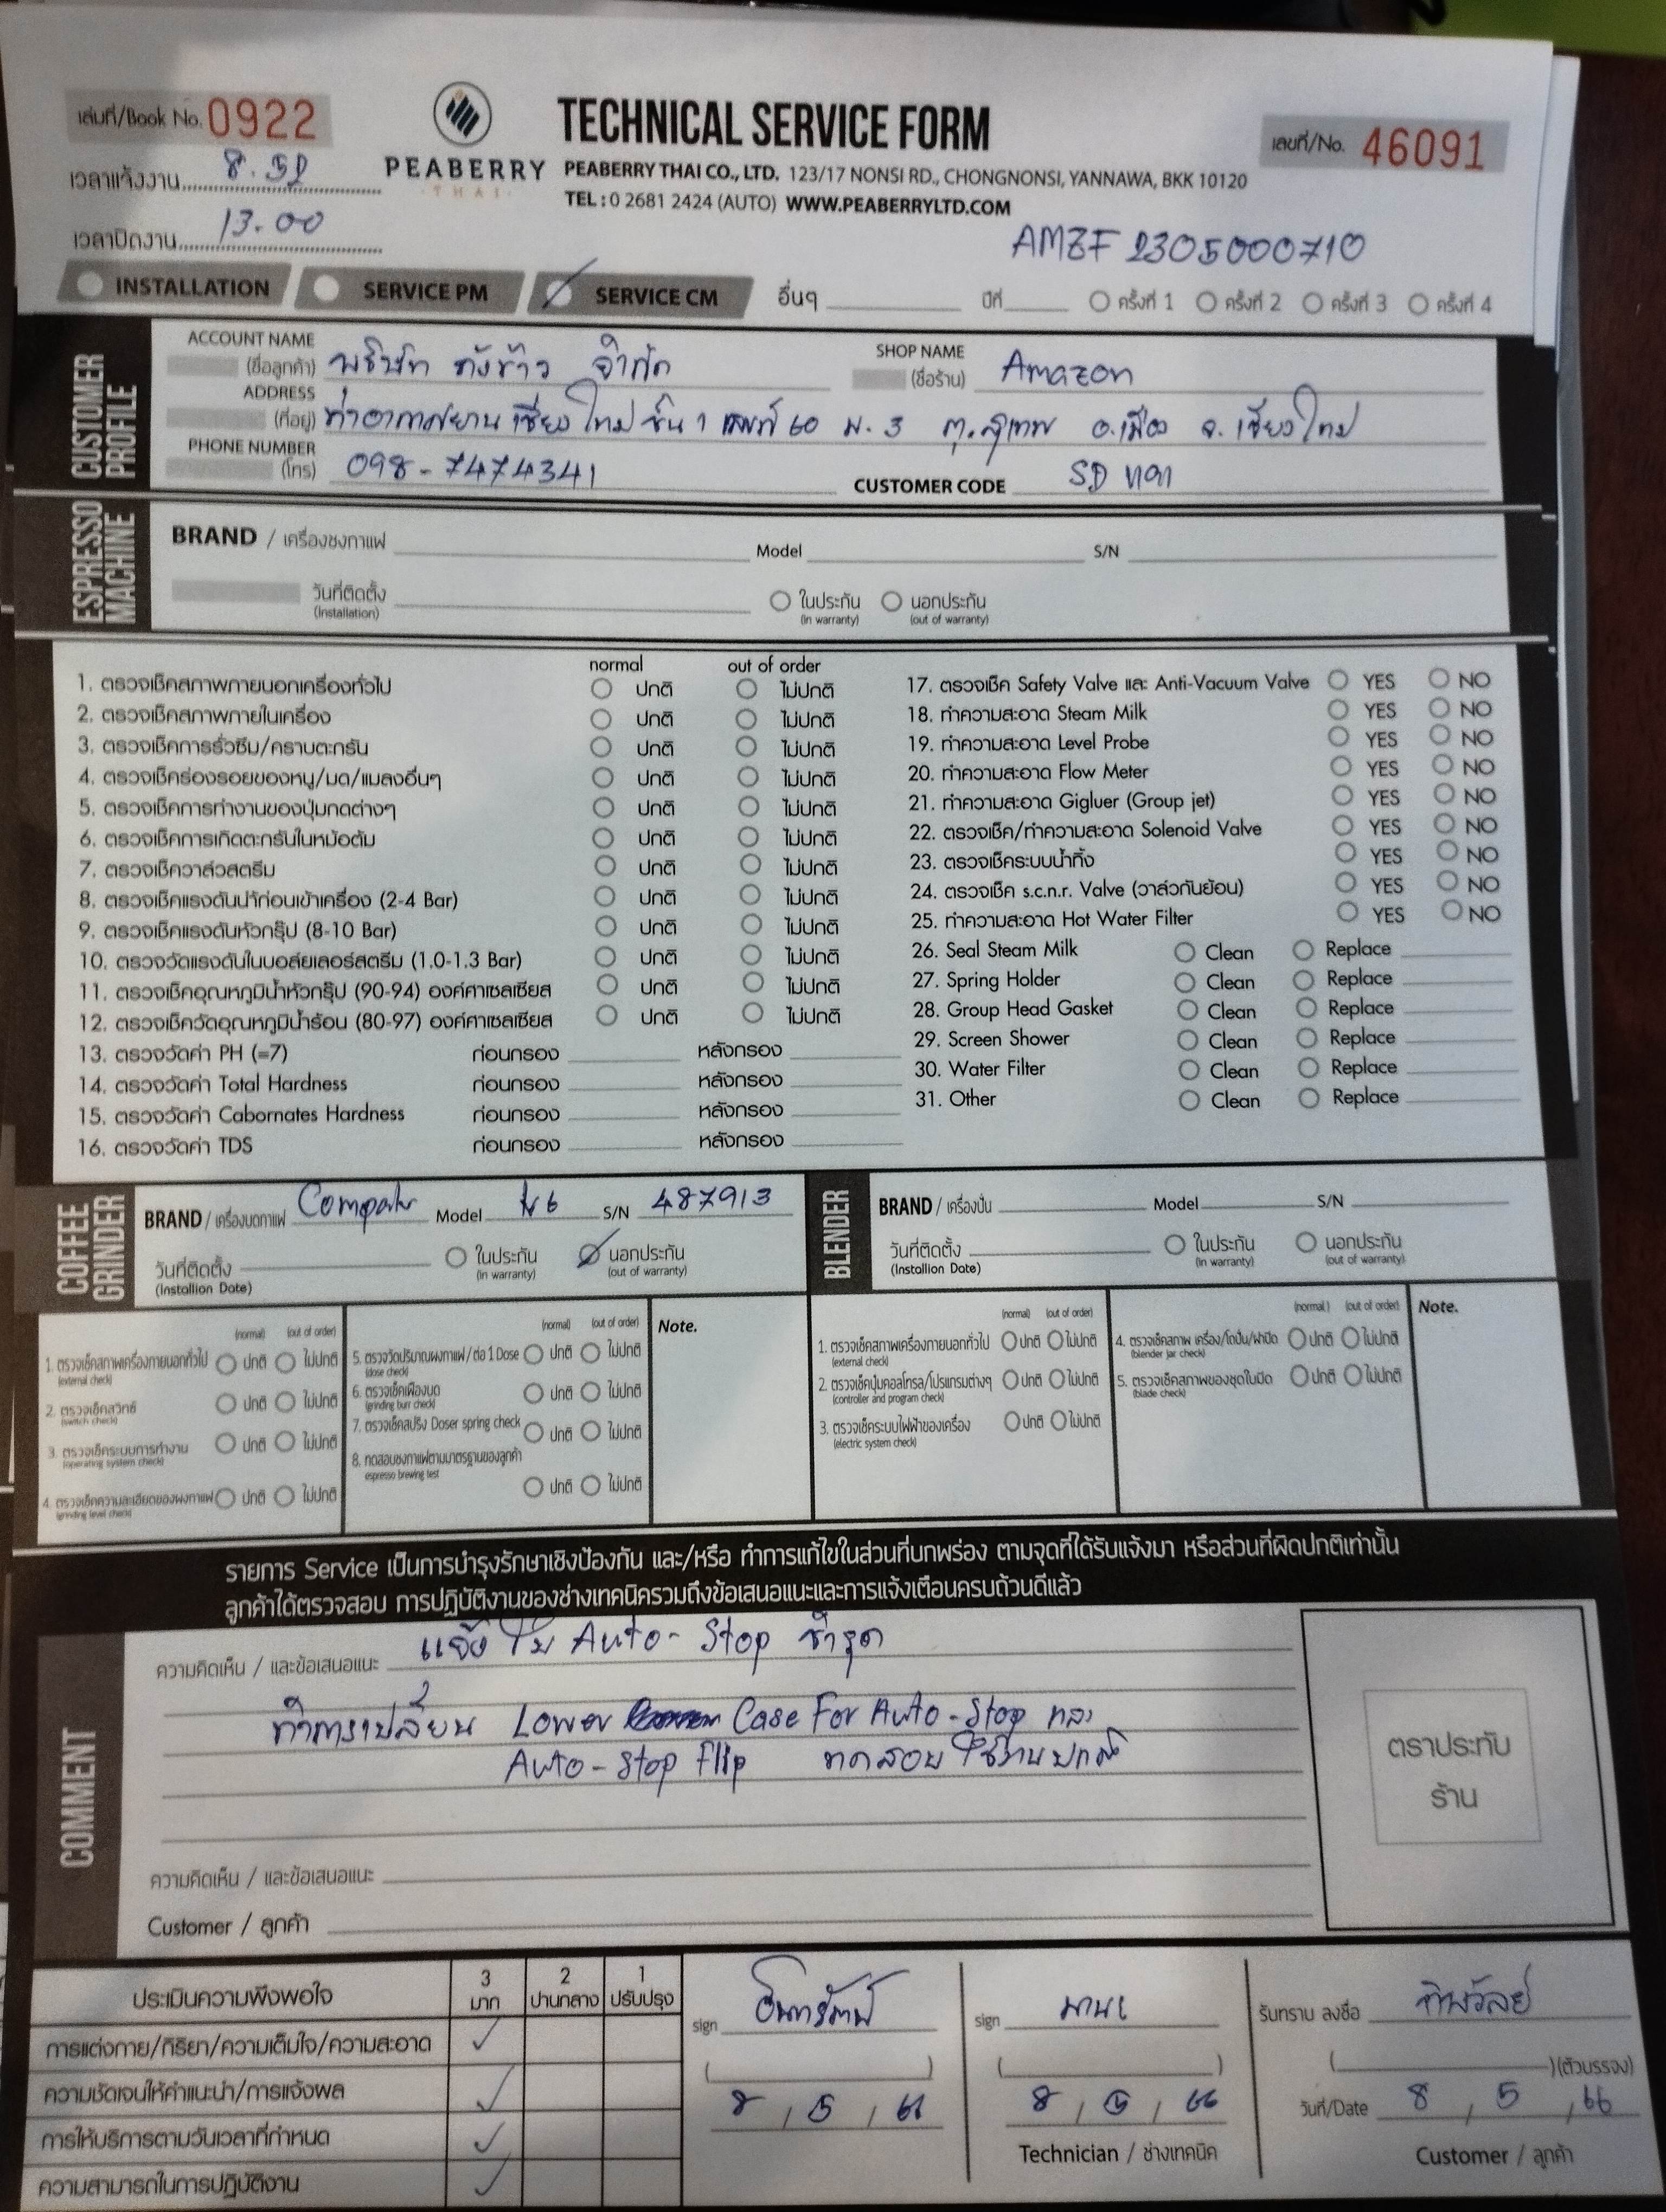 เล่มที่/Book No. 0922
PEABERRY
THAI
TECHNICAL SERVICE FORM
PEABERRY THAI CO., LTD. 123/17 NONSI RD., CHONGNONSI, YANNAWA, BKK 10120
TEL : 0 2681 2424 (AUTO) WWW.PEABERRYLTD.COM
เลขที่/No. 46091
เวลาแจ้งงาน
เวลาปิดงาน 13.00
AMZF 2305000710
INSTALLATION SERVICE PM SERVICE CM อื่นๆ ปีที่ ครั้งที่ 1 ครั้งที่ 2 ครั้งที่ 3 ครั้งที่ 4
CUSTOMER PROFILE
ACCOUNT NAME (ชื่อลูกค้า) จำกัด SHOP NAME (ชื่อร้าน) Amazon
ADDRESS (ที่อยู่) ท่าอากาศยานเชียงใหม่ ชั้น 1 เลขที่ 60 ม. 3 ต.สุเทพ อ.เมือง จ.เชียงใหม่
PHONE NUMBER (โทร) 098-7474341 CUSTOMER CODE SD
ESPRESSO MACHINE
BRAND / เครื่องชงกาแฟ Model S/N
วันที่ติดตั้ง (Installation) ในประกัน (in warranty) นอกประกัน (out of warranty)
normal out of order
1. ตรวจเช็คสภาพภายนอกเครื่องทั่วไป ปกติ ไม่ปกติ
2. ตรวจเช็คสภาพภายในเครื่อง ปกติ ไม่ปกติ
3. ตรวจเช็คการรั่วซึม/คราบตะกรัน ปกติ ไม่ปกติ
4. ตรวจเช็คร่องรอยของหนู/มด/แมลงอื่นๆ ปกติ ไม่ปกติ
5. ตรวจเช็คการทำงานของปุ่มกดต่างๆ ปกติ ไม่ปกติ
6. ตรวจเช็คการเกิดตะกรันในหม้อต้ม ปกติ ไม่ปกติ
7. ตรวจเช็ควาล์วสตรีม ปกติ ไม่ปกติ
8. ตรวจเช็คแรงดันน้ำก่อนเข้าเครื่อง (2-4 Bar) ปกติ ไม่ปกติ
9. ตรวจเช็คแรงดันหัวกรุ๊ป (8-10 Bar) ปกติ ไม่ปกติ
10. ตรวจวัดแรงดันในบอล์ยเลอร์สตรีม (1.0-1.3 Bar) ปกติ ไม่ปกติ
11. ตรวจเช็คอุณหภูมิน้ำหัวกรุ๊ป (90-94) องค์ศาเซลเซียส ปกติ ไม่ปกติ
12. ตรวจเช็ควัดอุณหภูมิน้ำร้อน (80-97) องค์ศาเซลเซียส ปกติ ไม่ปกติ
13. ตรวจวัดค่า PH (=7) ก่อนกรอง หลังกรอง
14. ตรวจวัดค่า Total Hardness ก่อนกรอง หลังกรอง
15. ตรวจวัดค่า Cabornates Hardness ก่อนกรอง หลังกรอง
16. ตรวจวัดค่า TDS ก่อนกรอง หลังกรอง
17. ตรวจเช็ค Safety Valve และ Anti-Vacuum Valve YES NO
18. ทำความสะอาด Steam Milk YES NO
19. ทำความสะอาด Level Probe YES NO
20. ทำความสะอาด Flow Meter YES NO
21. ทำความสะอาด Gigluer (Group jet) YES NO
22. ตรวจเช็ค/ทำความสะอาด Solenoid Valve YES NO
23. ตรวจเช็คระบบน้ำทิ้ง YES NO
24. ตรวจเช็ค s.c.n.r. Valve (วาล์วกันย้อน) YES NO
25. ทำความสะอาด Hot Water Filter YES NO
26. Seal Steam Milk Clean Replace
27. Spring Holder Clean Replace
28. Group Head Gasket Clean Replace
29. Screen Shower Clean Replace
30. Water Filter Clean Replace
31. Other Clean Replace
COFFEE GRINDER
BRAND / เครื่องบดกาแฟ Model S/N 487913
วันที่ติดตั้ง (Installion Date) ในประกัน (in warranty) นอกประกัน (out of warranty)
BLENDER
BRAND / เครื่องปั่น Model S/N
วันที่ติดตั้ง (Installion Date) ในประกัน (in warranty) นอกประกัน (out of warranty)
(normal) (out of order)
1. ตรวจเช็คสภาพเครื่องภายนอกทั่วไป (external check) ปกติ ไม่ปกติ
2. ตรวจเช็คสวิทซ์ (switch check) ปกติ ไม่ปกติ
3. ตรวจเช็คระบบการทำงาน (operating system check) ปกติ ไม่ปกติ
4. ตรวจเช็คความละเอียดของผงกาแฟ (grinding level check) ปกติ ไม่ปกติ
(normal) (out of order)
5. ตรวจวัดปริมาณผงกาแฟ / ต่อ 1 Dose (dose check) ปกติ ไม่ปกติ
6. ตรวจเช็คเฟืองบด (grinding burr check) ปกติ ไม่ปกติ
7. ตรวจเช็คสปริง Doser spring check ปกติ ไม่ปกติ
8. ทดสอบชงกาแฟตามมาตรฐานของลูกค้า espresso brewing test ปกติ ไม่ปกติ
Note.
(normal) (out of order)
1. ตรวจเช็คสภาพเครื่องภายนอกทั่วไป (external check) ปกติ ไม่ปกติ
2. ตรวจเช็คปุ่มคอลโทรล/โปรแกรมต่างๆ (controller and program check) ปกติ ไม่ปกติ
3. ตรวจเช็คระบบไฟฟ้าของเครื่อง (electric system check) ปกติ ไม่ปกติ
(normal) (out of order)
4. ตรวจเช็คสภาพ เครื่อง/โถปั่น/ฝาปิด (blender jar check) ปกติ ไม่ปกติ
5. ตรวจเช็คสภาพของชุดใบมีด (blade check) ปกติ ไม่ปกติ
Note.
รายการ Service เป็นการบำรุงรักษาเชิงป้องกัน และ/หรือ ทำการแก้ไขในส่วนที่บกพร่อง ตามจุดที่ได้รับแจ้งมา หรือส่วนที่ผิดปกติเท่านั้น
ลูกค้าได้ตรวจสอบ การปฏิบัติงานของช่างเทคนิครวมถึงข้อเสนอแนะและการแจ้งเตือนครบถ้วนดีแล้ว
COMMENT
ความคิดเห็น / และข้อเสนอแนะ แจ้ง ใบ Auto-Stop ชำรุด
ทำการเปลี่ยน Lower Case For Auto-Stop และ
Auto-Stop Flip ทดสอบใช้งานปกติ
ความคิดเห็น / และข้อเสนอแนะ
Customer / ลูกค้า
ตราประทับ
ร้าน
ประเมินความพึงพอใจ 3 มาก 2 ปานกลาง 1 ปรับปรุง
การแต่งกาย/กิริยา/ความเต็มใจ/ความสะอาด
ความชัดเจนให้คำแนะนำ/การแจ้งผล
การให้บริการตามวันเวลาที่กำหนด
ความสามารถในการปฏิบัติงาน
sign
8 / 5 / 66
sign
8 / 5 / 66
Technician / ช่างเทคนิค
รับทราบ ลงชื่อ ทิพวัลย์
(ตัวบรรจง)
วันที่/Date 8 / 5 / 66
Customer / ลูกค้า